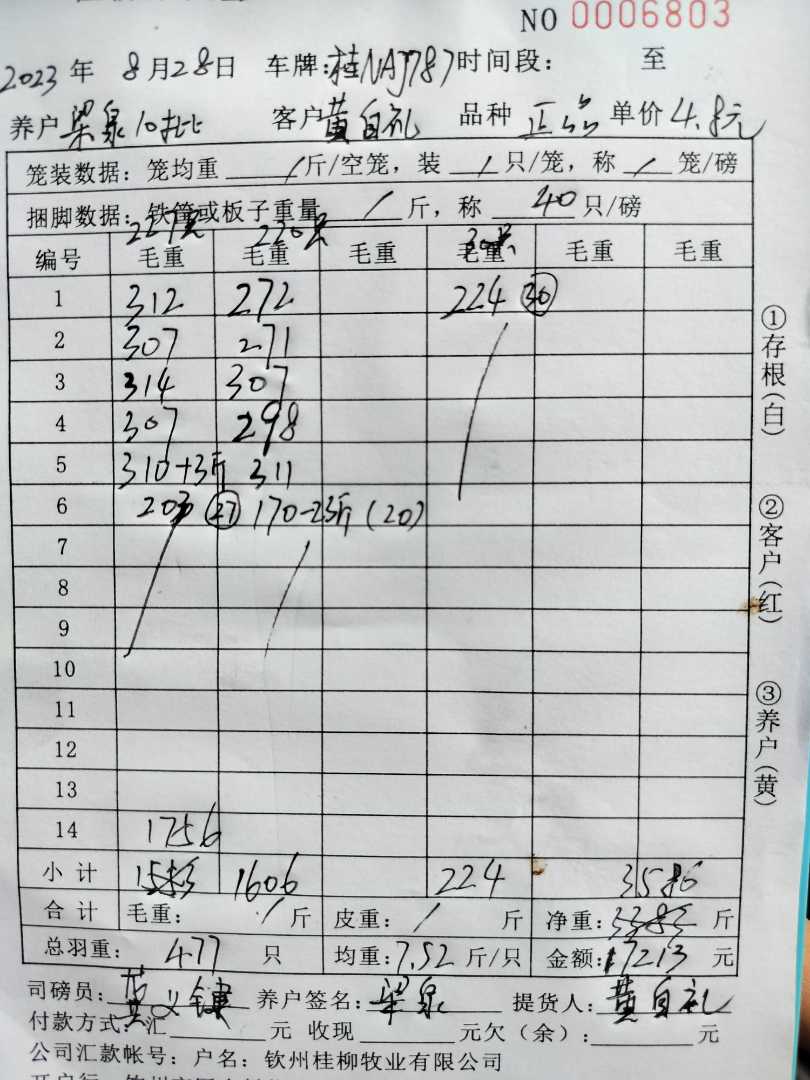 NO 0006803
2023 年 8月28日 车牌:桂NAJ787 时间段: 至
养户 梁泉10批 客户 黄自礼 品种 正品 单价 4.8元
笼装数据: 笼均重 / 斤/空笼, 装 / 只/笼, 称 / 笼/磅
捆脚数据: 铁筐或板子重量 / 斤, 称 40 只/磅
227只 220只 30只
编号 毛重 毛重 毛重 毛重 毛重 毛重
1 312 272 224 (30)
2 307 271
3 314 307
4 307 298
5 310+3斤 311
6 203 (27) 170-23斤(20)
7
8
9
10
11
12
13
14 1756
小计 1606 224 3586
合计 毛重: / 斤 皮重: / 斤 净重: 3383 斤
总羽重: 477 只 均重: 7.52 斤/只 金额: 17213 元
司磅员: 黄义健 养户签名: 梁泉 提货人: 黄自礼
付款方式: 汇 元 收现 元欠(余): 元
公司汇款帐号: 户名: 钦州桂柳牧业有限公司
①存根(白)
②客户(红)
③养户(黄)